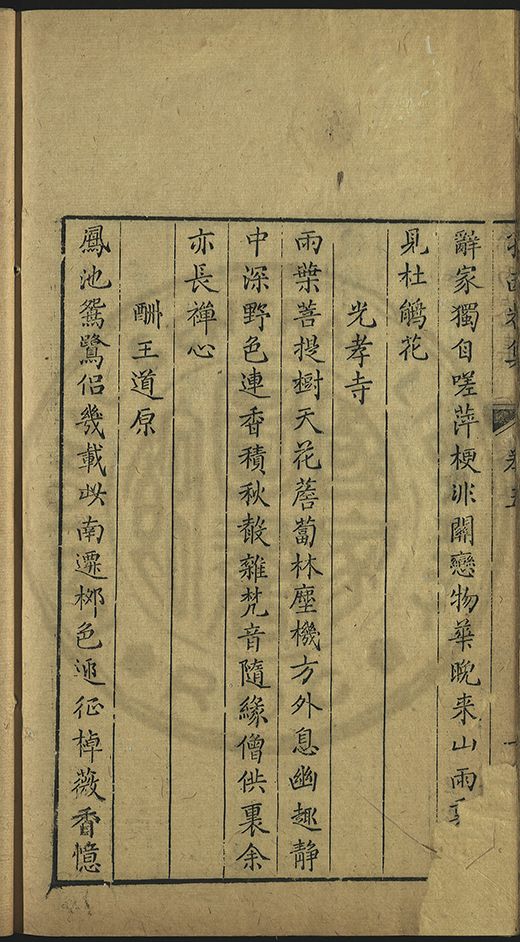 卷五
辭家獨自嗟萍梗非關戀物華晩来山雨
見杜鵑花
光孝寺
雨葉菩提樹天花薝蔔林塵機方外息幽趣静
中深野色連香積秋聲雜梵音隨緣僧供裏余
亦長禪心
酬王道原
鳳池鴛鷺侣幾載此南遷栁色迎征棹薇香憶